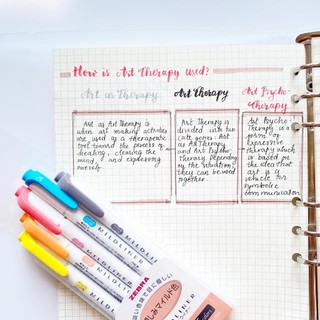 How is Art Therapy used?
Art as Therapy
Art as Art Therapy is
when art making activities
are used as a therapeutic
tool toward the process of
healing, clearing the
mind, and exploring
oneself.
Art Therapy
Art Therapy is
divided into two
categories. Art
as Art Therapy
and Art Psycho
Therapy. Depending
on the situation,
they can be used
together.
Art Psycho
Therapy
Art Psycho-
Therapy is a
form of
expressive
therapy which
is based on
the idea that
art is a
vehicle for
symbolic
communication
MILDLINER
MILDLINER
MILDLINER
MILDLINER
ZEBRA
マイルド色